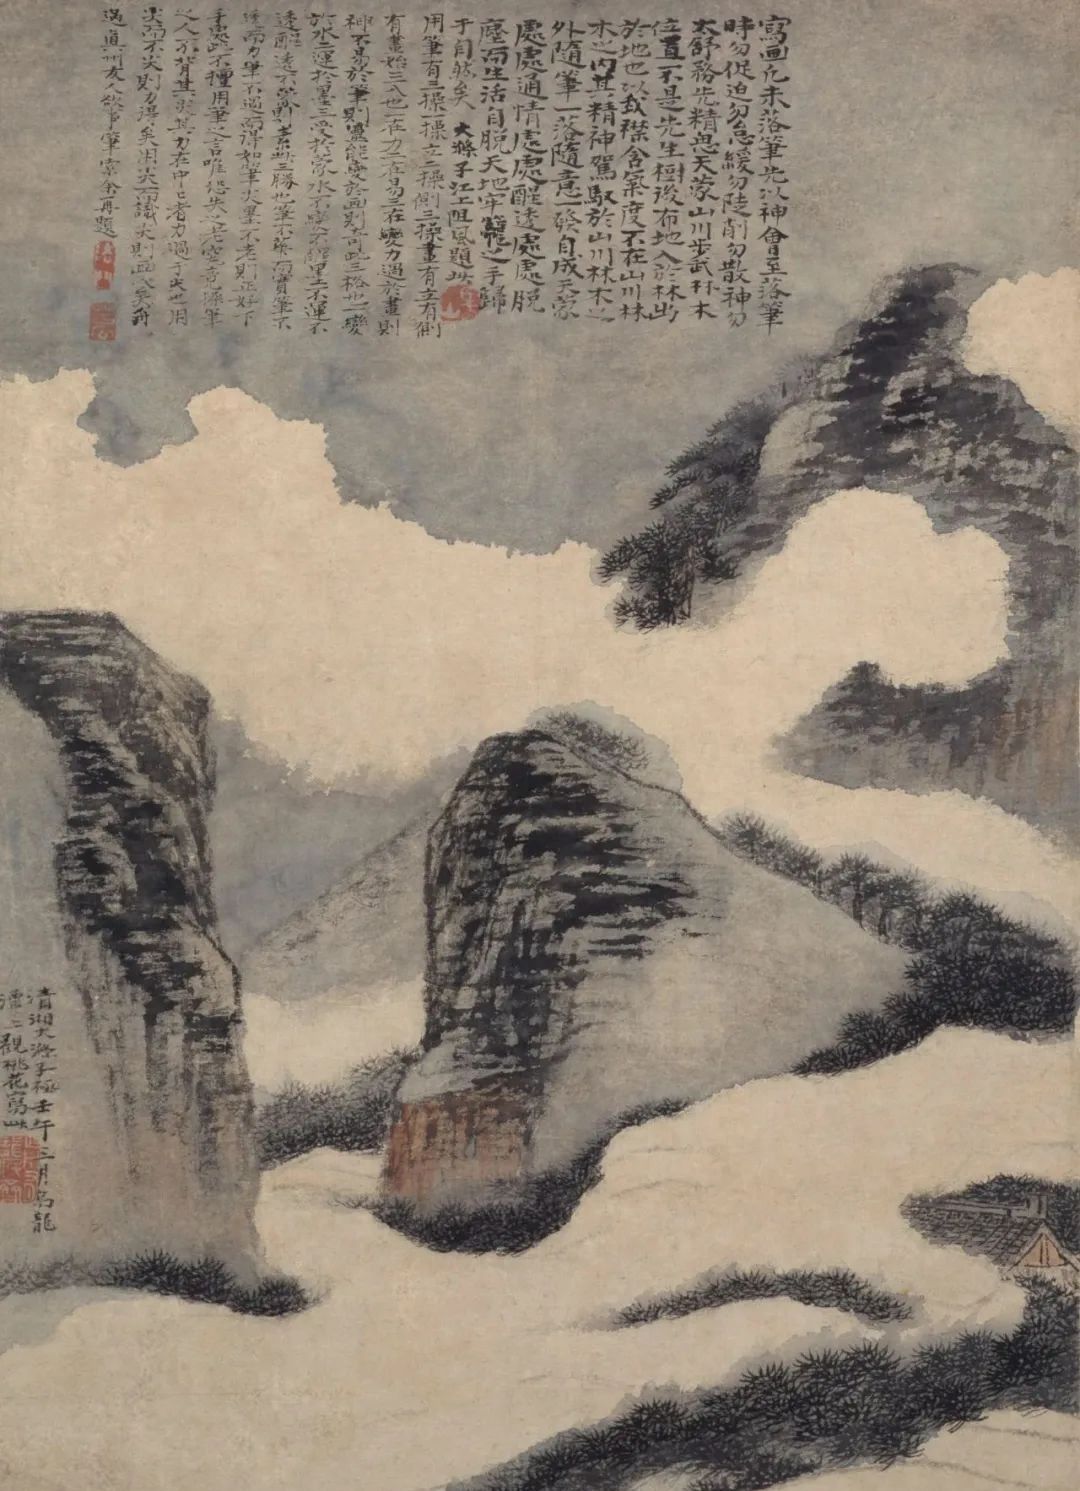 寫画凡未落筆先以神會至落筆
時勿促迫勿怠緩勿陡削勿散神勿
太舒務先精思天蒙山川步武林木
位置不是先生樹後布地入於林出
於地也以我襟含氣度不在山川林
木之内其精神駕馭於山川林木之
外隨筆一落隨意一發自成天蒙
處處通情處處醒透處處脱
塵而生活自脱天地牢籠之手歸
于自然矣 大滌子江上阻風題
用筆有三操一操立二操側三操畫有立有側
有畫始三入也一在力二在易三在變力過於畫則
神不易於筆則靈能變於画則奇此三格也一變
於水二運於墨三受於蒙水不變不醒墨不運不
透醒透不蒙則素此三勝也筆不華而實筆不
透而力筆不過而得如筆尖墨不老則正好下
手此不擅用筆之言唯恐失之
之人不背其尖其力在中中者力過于尖也用
尖而不尖則力得矣用尖而識尖則画入矣
遇真州友人欲事筆索余再題
清湘大滌子極壬午三月烏龍
潭上觀桃花寫此